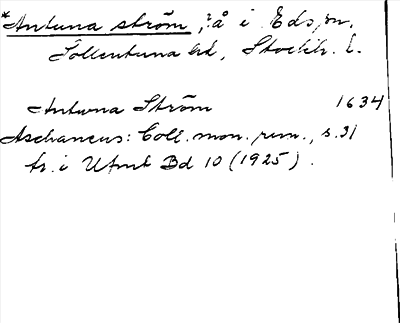 *Antuna ström, ?å i Eds sn,
Sollentuna hd, Stockh. l.
Antwna Ström 1634
Aschaneus: Coll. mon. run., s. 31
tr. i Ufmt Bd 10 (1925).